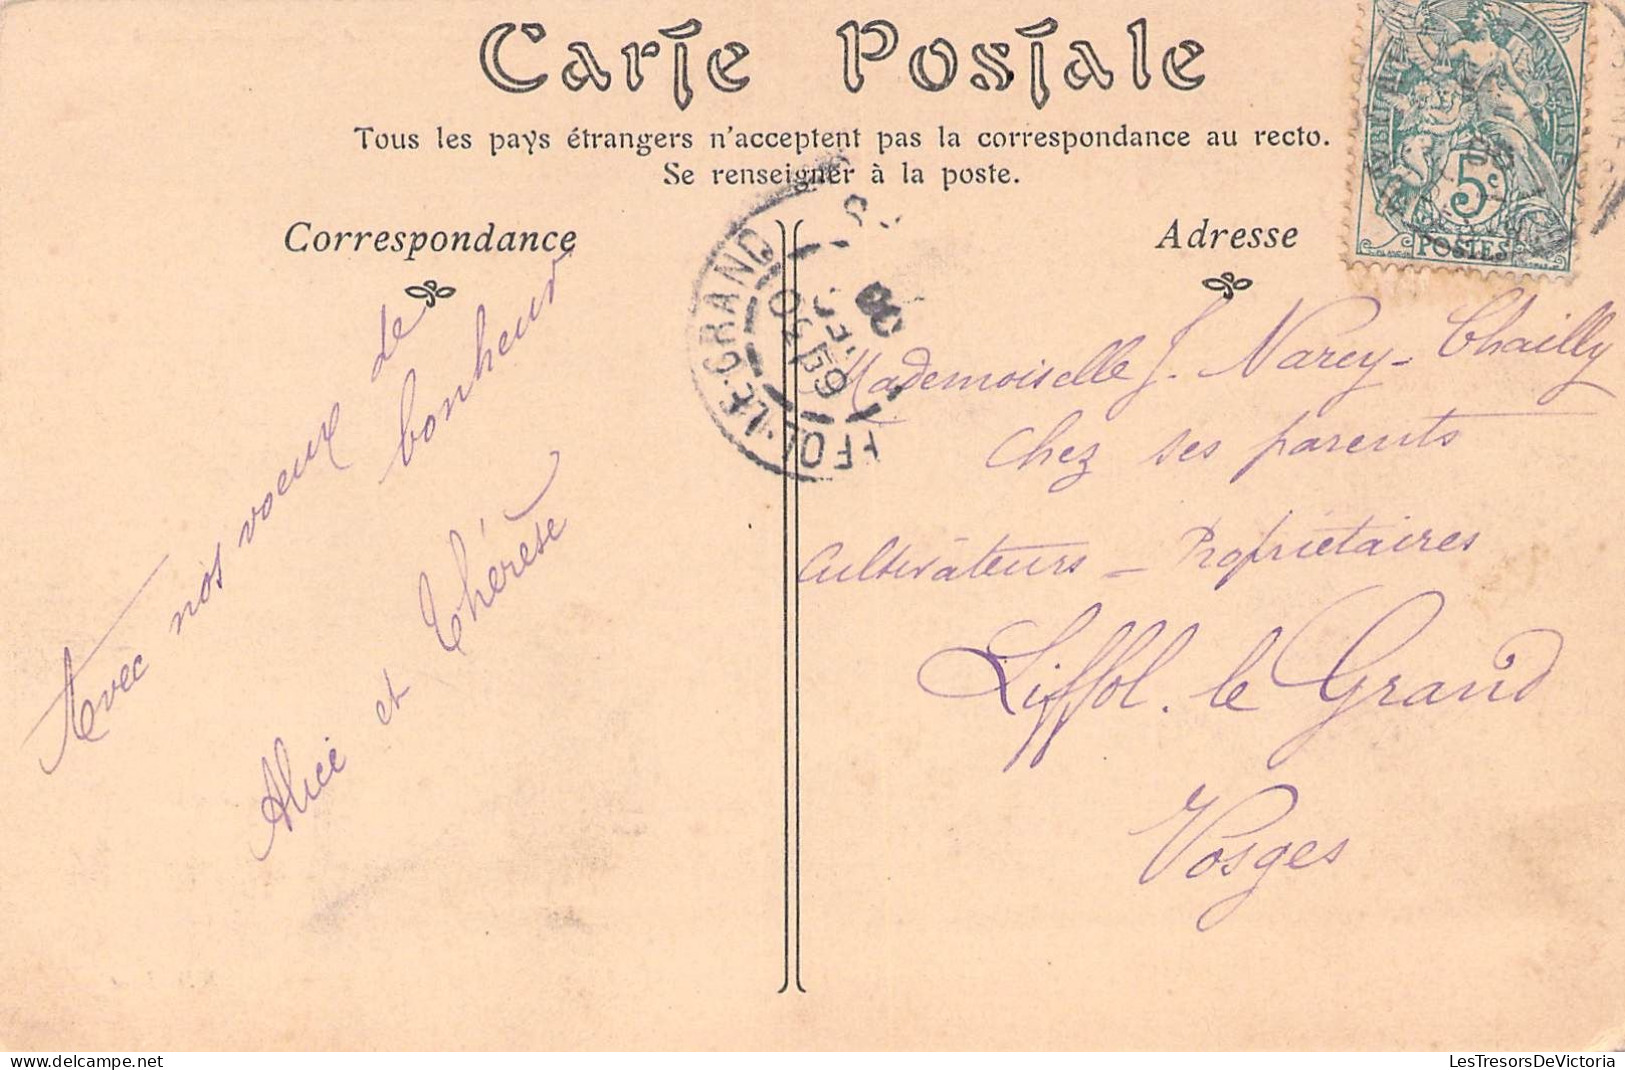 Carte Postale
Tous les pays étrangers n'acceptent pas la correspondance au recto.
Se renseigner à la poste.
Correspondance
Adresse
Avec nos voeux de
bonheur
Alice et Thérèse
Mademoiselle J. Narcy-Chailly
chez ses parents
Cultivateurs - Propriétaires
Liffol. le Grand
Vosges
LIFFOL-LE-GRAND
5c
POSTES
LesTresorsDeVictoria
www.delcampe.net